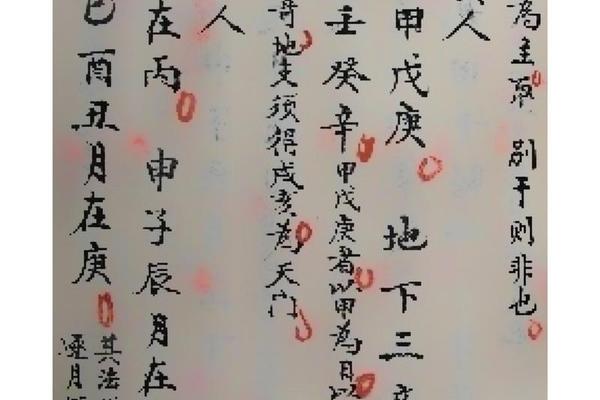 為主取 別干則非也
人
甲戊庚 地下三
壬癸辛 甲戊庚者以甲為日以
奇地支須得戌亥為天門
人
在丙 申子辰月在
巳酉丑月在庚
其法
逐月